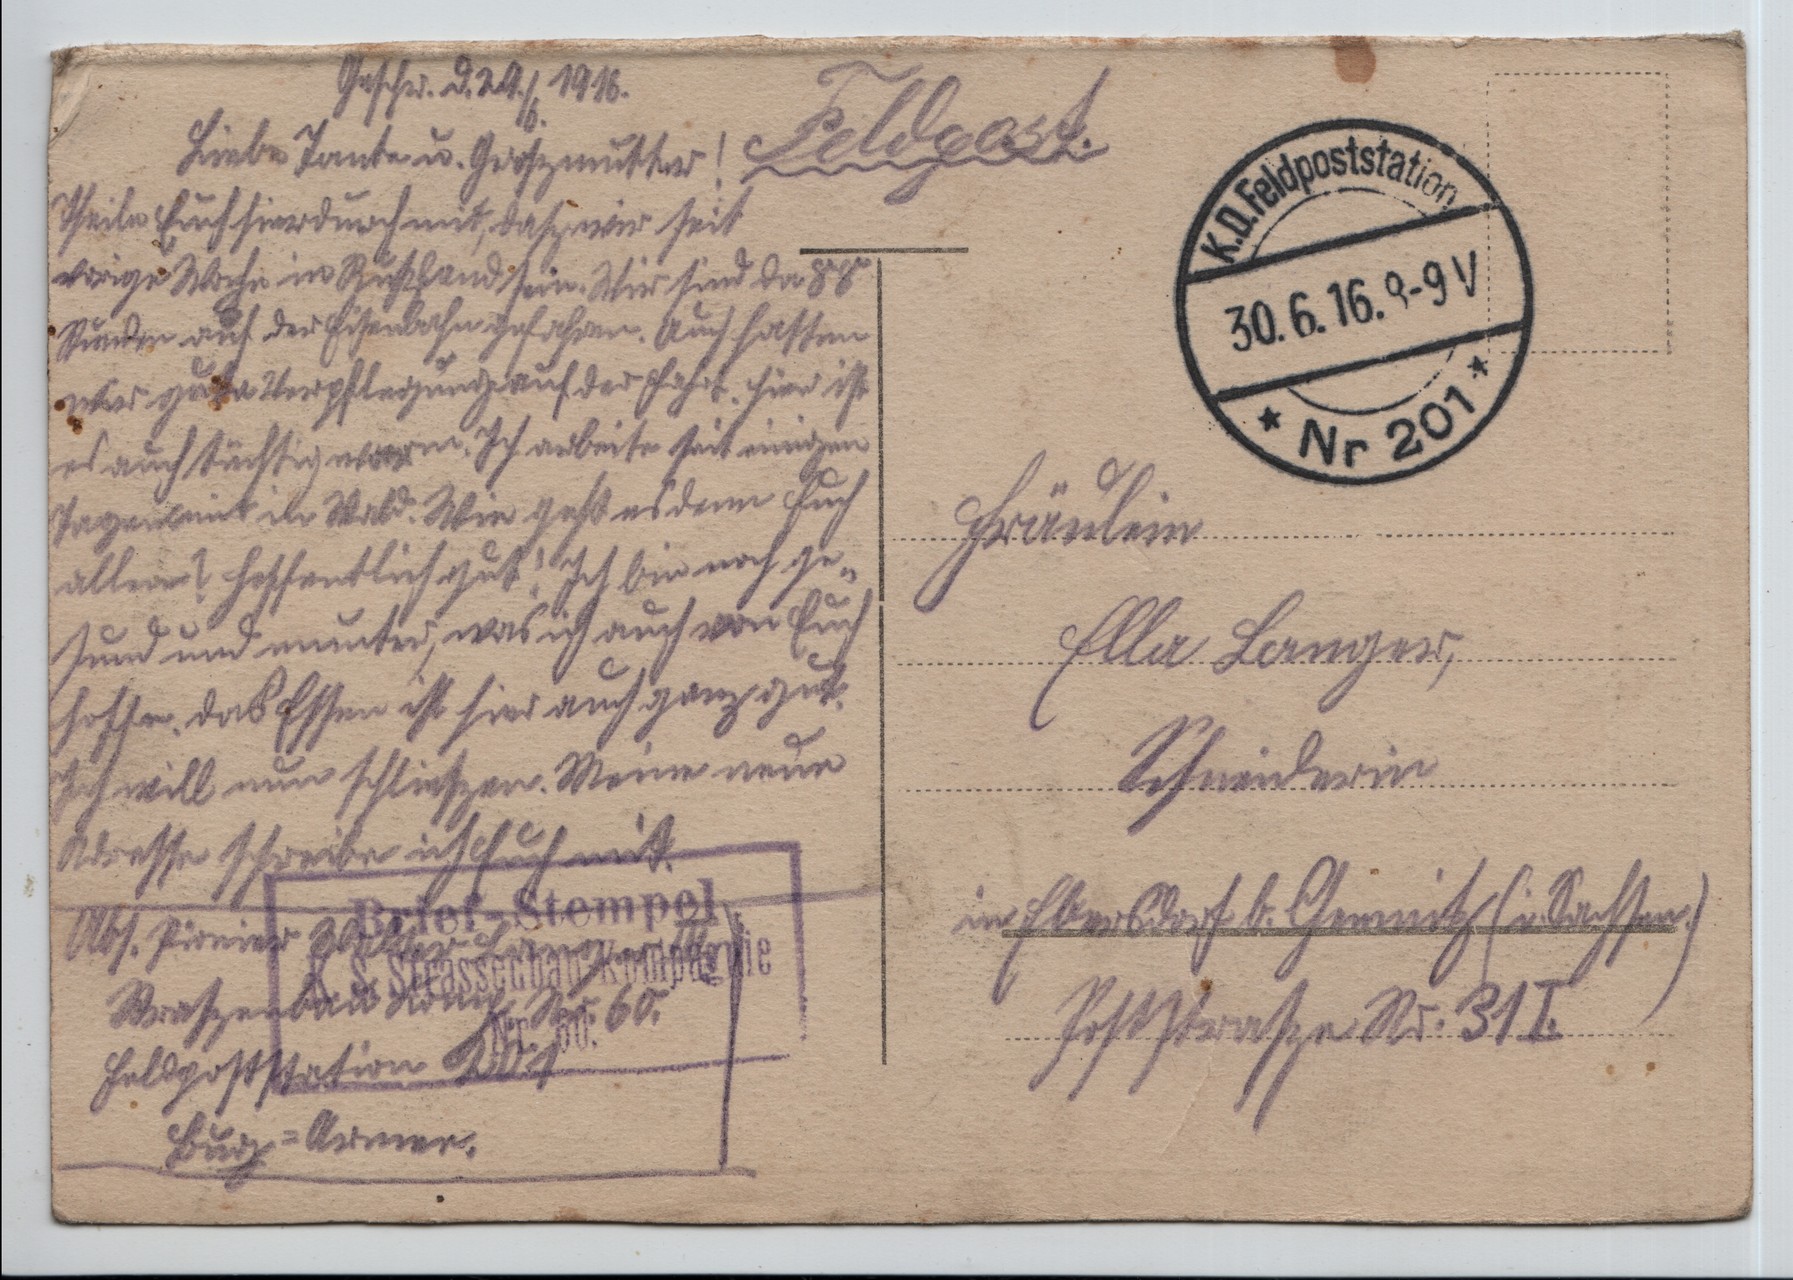 Geschr. d. 29./6. 1916.
Liebe Tante u. Groszmutter!
Theile Euch hierdurch mit, dasz wir seit
vorige Woche in Ruszland sein. Wir sind da 88
Stunden auf der Eisenbahn gefahren. Auch hatten
wir gute Verpflegung auf der Fahrt. Hier ist
es auch tüchtig warm. Ich arbeite seit einigen
Tagen mit im Wald. Wie geht es denn Euch
allen? Hoffentlich gut! Ich bin noch ge-
sund und munter, was ich auch von Euch
hoffe. Das Essen ist hier auch ganz gut.
Ich will nun schlieszen. Meine neue
Adresse schreibe ich Euch mit.
Abs. Pionier Walter
Straszenbau Komp. Nr. 60.
Feldpoststation 201
Bug=Armee.
Brief-Stempel
K. S. Strassenbau-Kompagnie
Nr. 60.
Feldpost.
K.D. Feldpoststation
30.6.16. 8-9 V
* Nr 201 *
Fräulein
Ella Langer,
Schneiderin
in Ebersdorf b. Chemnitz (i. Sachsen.)
Poststrasze Nr. 31 I.